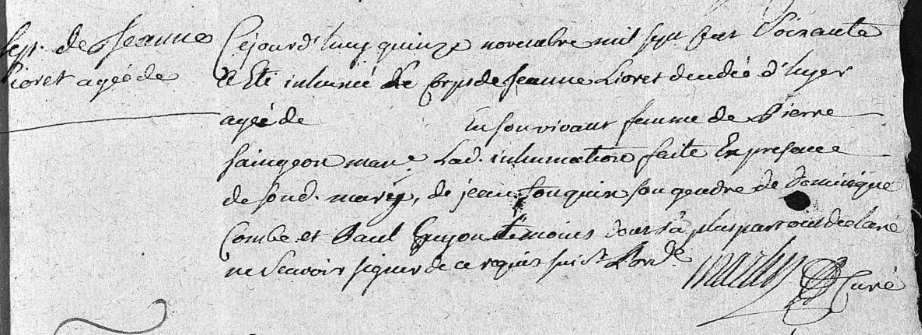 Sep.re de Jeanne
Lioret agéé de
Cejourd'huy quinze novembre mil sept Cent Soixante
a Eté inhumé le Corps de Jeanne Lioret decedée d'hyer
agée de En son vivant femme de Pierre
Saingeon man.e Lad. inhumation faite En presance
de sond. mary, de jean fouquin son gendre de Dominique
Combe et Paul Guyon temoins dont la plus part ont declaré
ne Scavoir signer de ce requis suiv.t L'ord.e
Curé